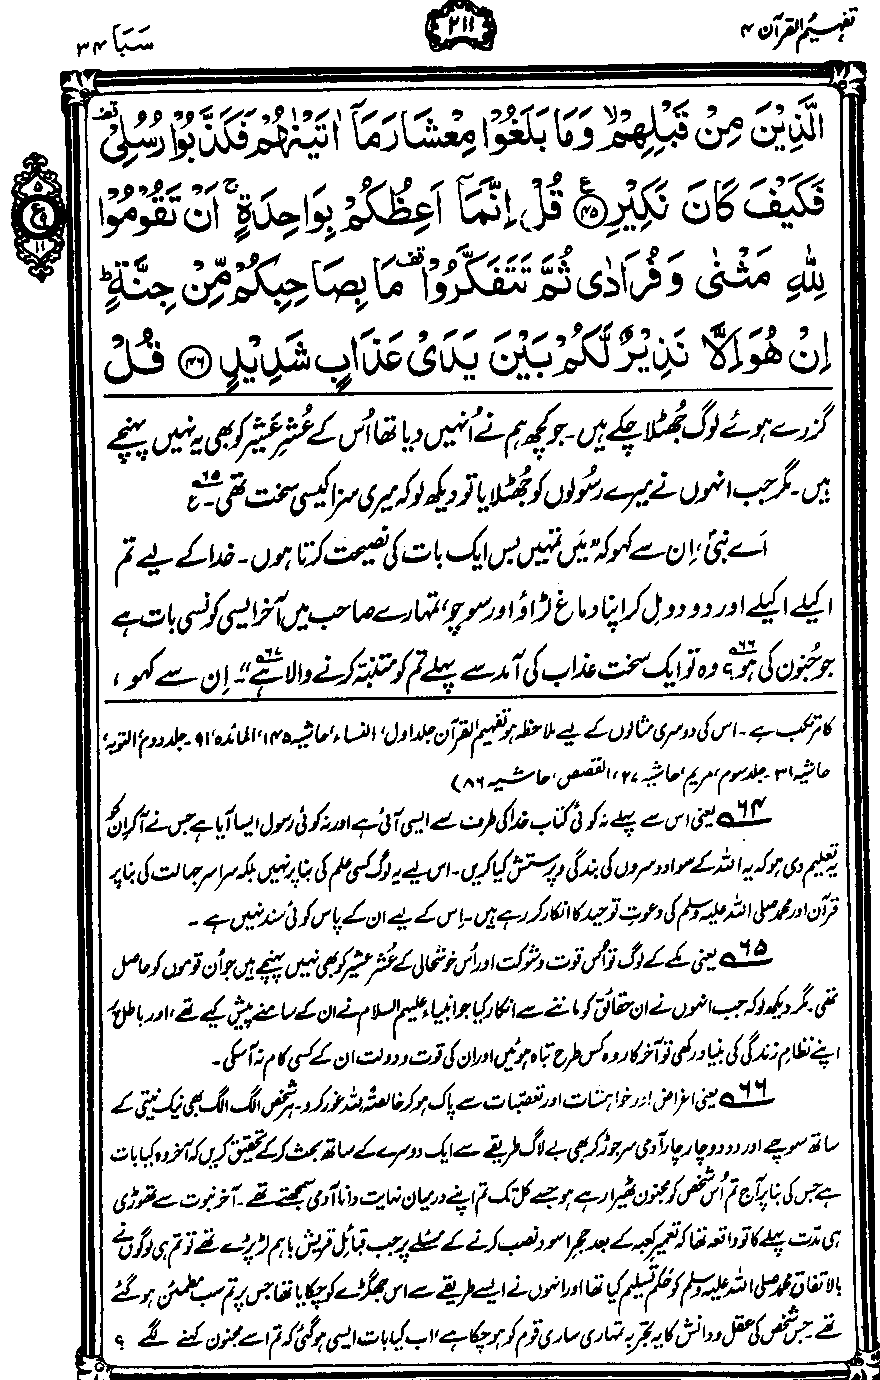 تفہیم القرآن ۴
۲۱۱
سَبَا ۳۴
الَّذِيْنَ مِنْ قَبْلِهِمْ ۙ وَمَا بَلَغُوْا مِعْشَارَ مَاۤ اٰتَيْنٰهُمْ فَكَذَّبُوْا رُسُلِيْ قف
فَكَيْفَ كَانَ نَكِيْرِ ﴿۴۵﴾ ع قُلْ اِنَّمَاۤ اَعِظُكُمْ بِوَاحِدَةٍ ۚ اَنْ تَقُوْمُوْا
لِلّٰهِ مَثْنٰى وَفُرَادٰى ثُمَّ تَتَفَكَّرُوْا قف مَا بِصَاحِبِكُمْ مِّنْ جِنَّةٍ ؕ
اِنْ هُوَ اِلَّا نَذِيْرٌ لَّكُمْ بَيْنَ يَدَىْ عَذَابٍ شَدِيْدٍ ﴿۴۶﴾ قُلْ
۵
ع
۱۱
گزرے ہوئے لوگ جُھٹلا چکے ہیں۔ جو کچھ ہم نے اُنہیں دیا تھا اُس کے عُشرِ عَشِیر کو بھی یہ نہیں پہنچے
ہیں۔ مگر جب انہوں نے میرے رسُولوں کو جُھٹلایا تو دیکھ لو کہ میری سزا کیسی سخت تھی۔ ۶۵ ع
اَے نبیؐ، اِن سے کہو کہ ”مَیں تمہیں بس ایک بات کی نصیحت کرتا ہوں۔ خدا کے لیے تم
اکیلے اکیلے اور دو دو مِل کر اپنا دماغ لڑاؤ اور سوچو، تمہارے صاحب میں آخر ایسی کونسی بات ہے
جو جُنون کی ہو؟ ۶۶ وہ تو ایک سخت عذاب کی آمد سے پہلے تم کو متنبّہ کرنے والا ہے“۔ ۶۷ اِن سے کہو ،
کا مرتکب ہے۔ اس کی دوسری مثالوں کے لیے ملاحظہ ہو تفہیم القرآن جلد اول، النساء، حاشیہ ۱۴۵، المائدہ، ۹۱۔ جلد دوم، التوبہ،
حاشیہ ۳۱۔ جلد سوم، مریم، حاشیہ ۲۷، القصص، حاشیہ ۸۶)
۶۴ یعنی اس سے پہلے نہ کوئی کتاب خدا کی طرف سے ایسی آئی ہے اور نہ کوئی رسول ایسا آیا ہے جس نے آکر اِن کو
یہ تعلیم دی ہو کہ یہ اللہ کے سوا دوسروں کی بندگی و پرستش کیا کریں۔ اس لیے یہ لوگ کسی علم کی بنا پر نہیں بلکہ سراسر جہالت کی بنا پر
قرآن اور محمد صلی اللہ علیہ وسلم کی دعوتِ توحید کا انکار کر رہے ہیں۔ اِس کے لیے ان کے پاس کوئی سند نہیں ہے ۔
۶۵ یعنی مکّے کے لوگ تو اُس قوت و شوکت اور اُس خوشحالی کے عُشرِ عشیر کو بھی نہیں پہنچے ہیں جو اُن قوموں کو حاصل
تھی۔ مگر دیکھ لو کہ جب انہوں نے ان حقائق کو ماننے سے انکار کیا جو انبیاء علیہم السلام نے ان کے سامنے پیش کیے تھے، اور باطل پر
اپنے نظامِ زندگی کی بنیاد رکھی تو آخر کار وہ کس طرح تباہ ہوئیں اور ان کی قوت و دولت ان کے کسی کام نہ آسکی ۔
۶۶ یعنی اغراض اور خواہشات اور تعصّبات سے پاک ہو کر خالصتہً للہ غور کرو۔ ہر شخص الگ الگ بھی نیک نیتی کے
ساتھ سوچے اور دو دو چار چار آدمی سر جوڑ کر بھی بے لاگ طریقے سے ایک دوسرے کے ساتھ بحث کر کے تحقیق کریں کہ آخر وہ کیا بات
ہے جس کی بنا پر آج تم اُس شخص کو مجنون ٹھیرا رہے ہو جسے کل تک تم اپنے درمیان نہایت دانا آدمی سمجھتے تھے۔ آخر نبوت سے تھوڑی
ہی مدّت پہلے کا تو واقعہ تھا کہ تعمیر کعبہ کے بعد حجرِ اسود نصب کرنے کے مسئلے پر جب قبائلِ قریش باہم لڑ پڑے تھے تو تم ہی لوگوں نے
بالاتفاق محمد صلی اللہ علیہ وسلم کو حَکَم تسلیم کیا تھا اور انہوں نے ایسے طریقے سے اس جھگڑے کو چکایا تھا جس پر تم سب مطمئن ہو گئے
تھے۔ جس شخص کی عقل و دانش کا یہ تجربہ تمہاری ساری قوم کو ہو چکا ہے، اب کیا بات ایسی ہو گئی کہ تم اسے مجنون کہنے لگے ؟